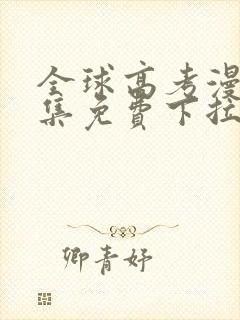 全球高考漫
集免费下拉
卿青妤